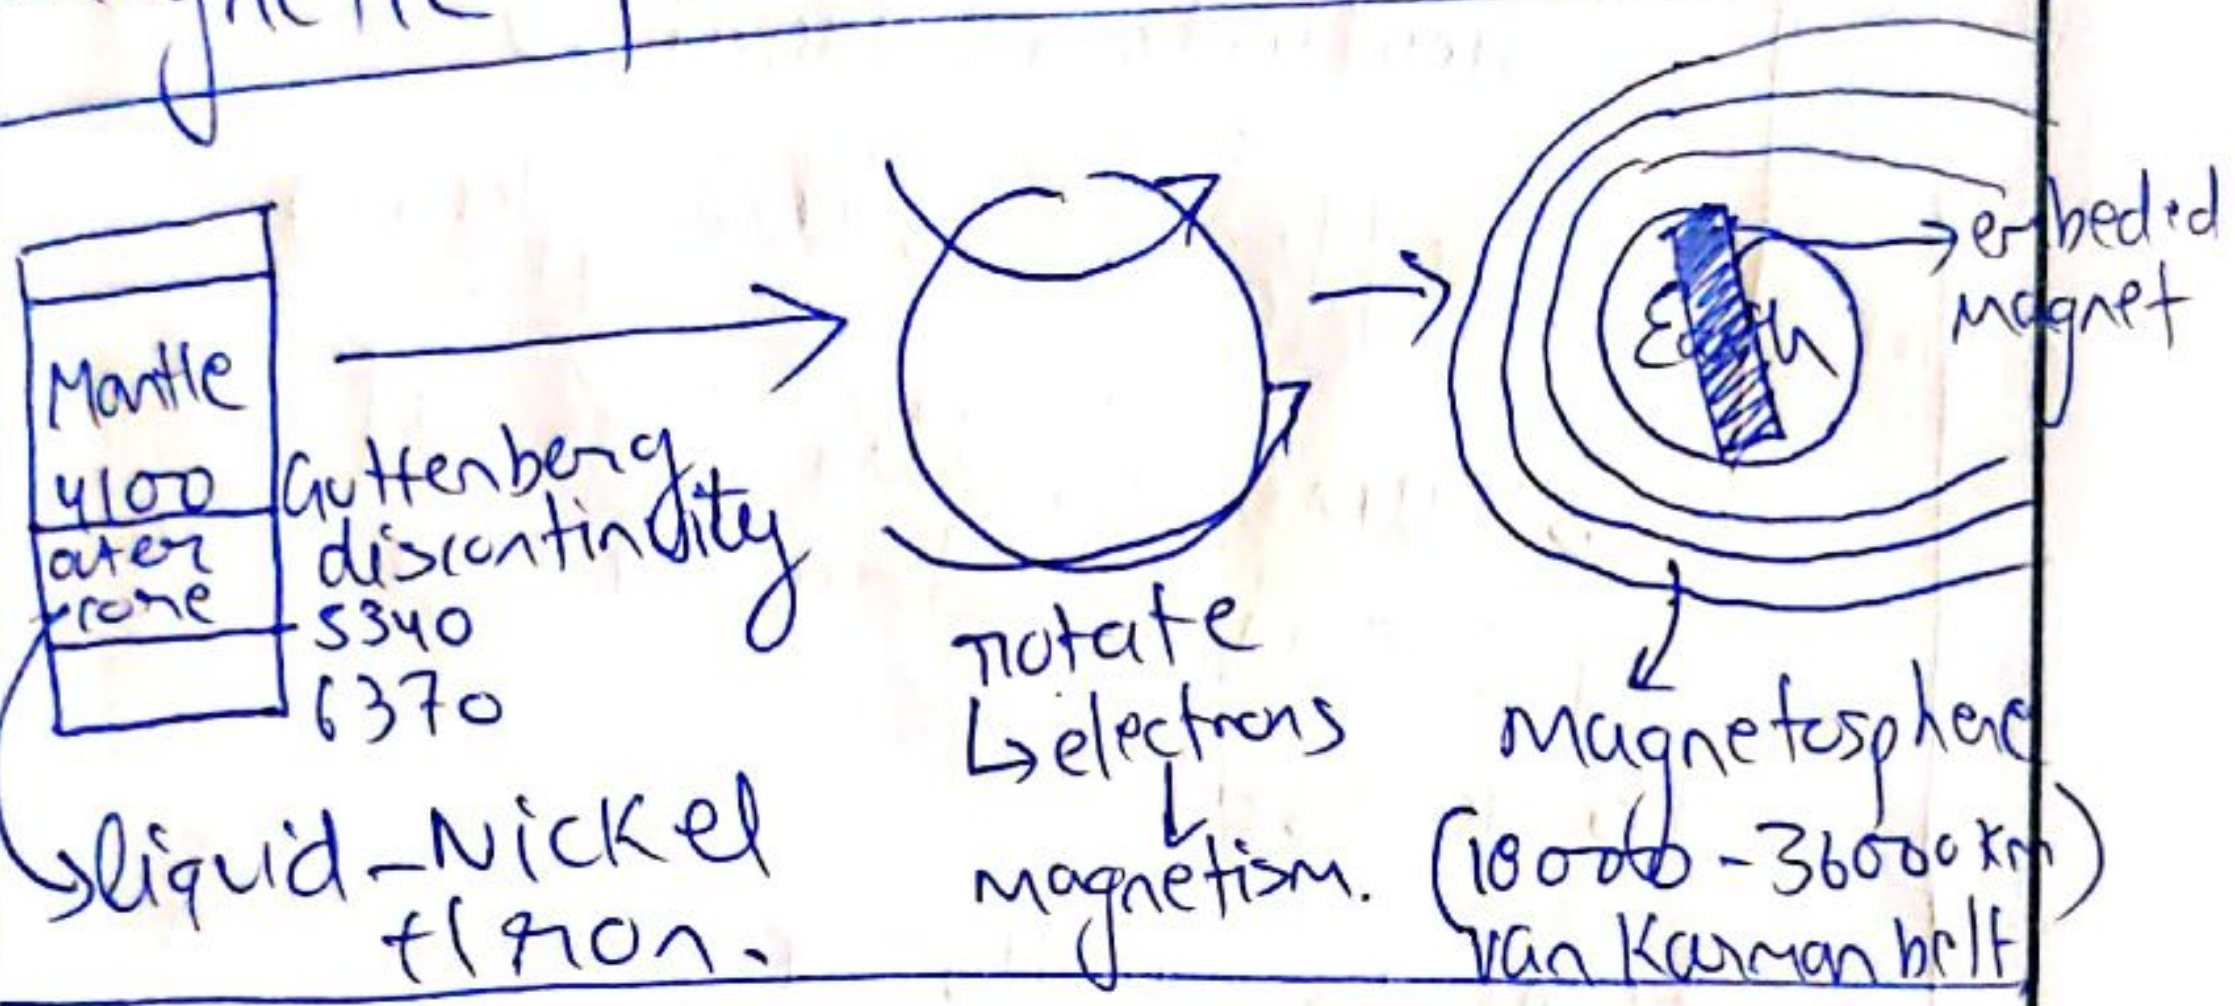 Mantle
4100
outer
core
Guttenberg
discontinuity
5340
6370
liquid-Nickel
+Iron.
rotate
↳electrons
magnetism.
Earth
embeded
magnet
Magnetosphere
(18000-36000 km)
van Karman belt